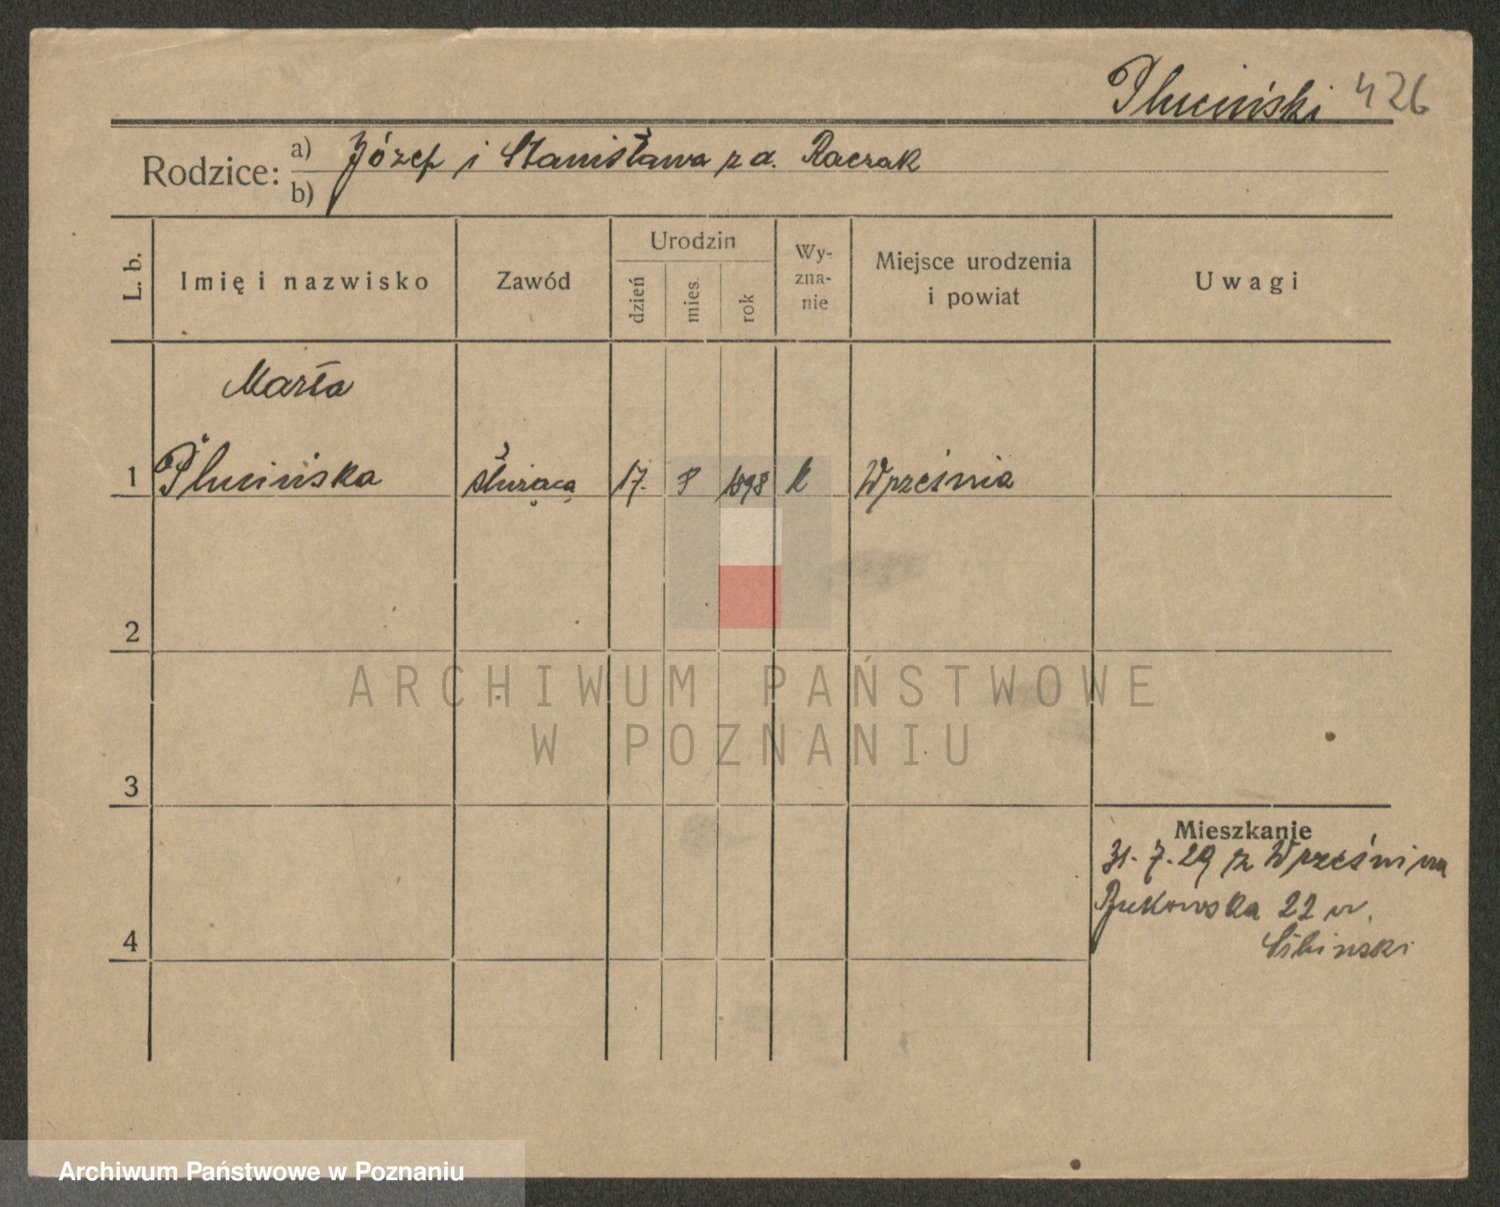 Pluciński 426
Rodzice: a) Józef i Stanisława z d. Raczak
b)
L. b.
Imię i nazwisko
Zawód
Urodzin
dzień
mies.
rok
Wy-
zna-
nie
Miejsce urodzenia
i powiat
Uwagi
Marta
1 Plucińska służąca 17. 8 1898 k Września
2
ARCHIWUM PAŃSTWOWE
W POZNANIU
3
Mieszkanie
31.7.29 z Wrześni na
Bukowska 22 u.
4
Archiwum Państwowe w Poznaniu